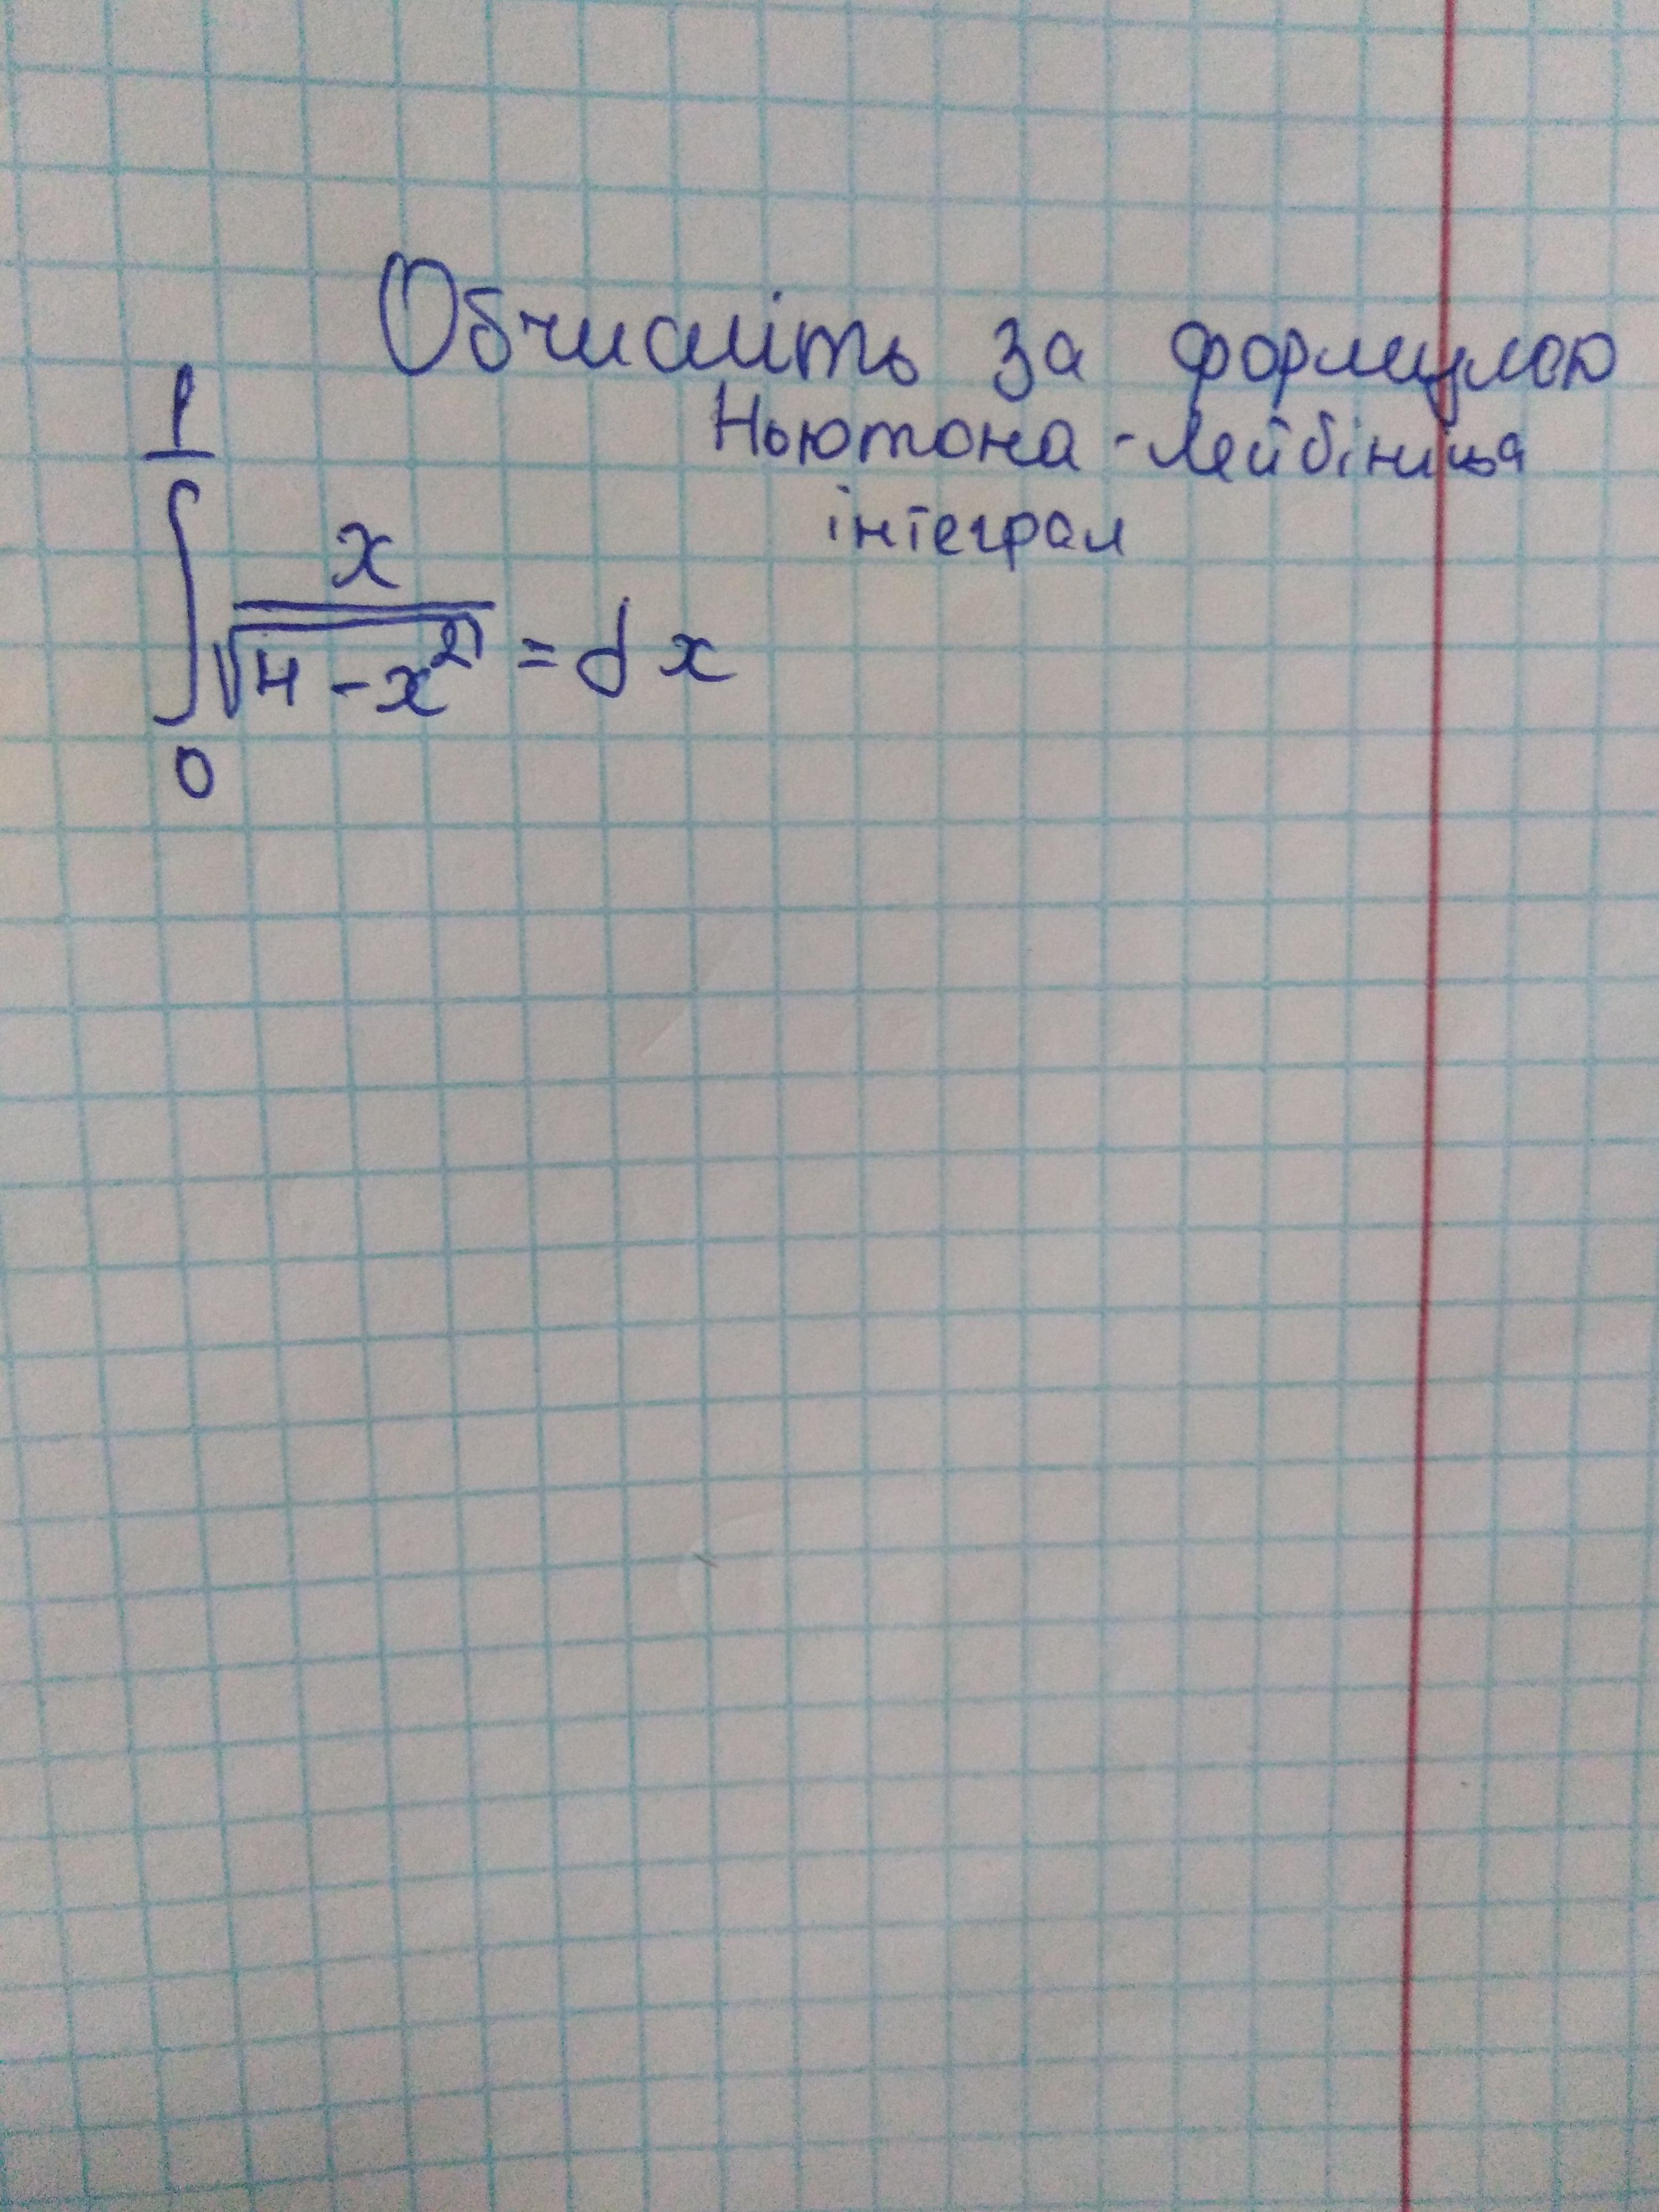 Обчисліть за формулою
Ньютона - Лейбініца
інтеграл
1
∫ x / √4 - x² = d x
0